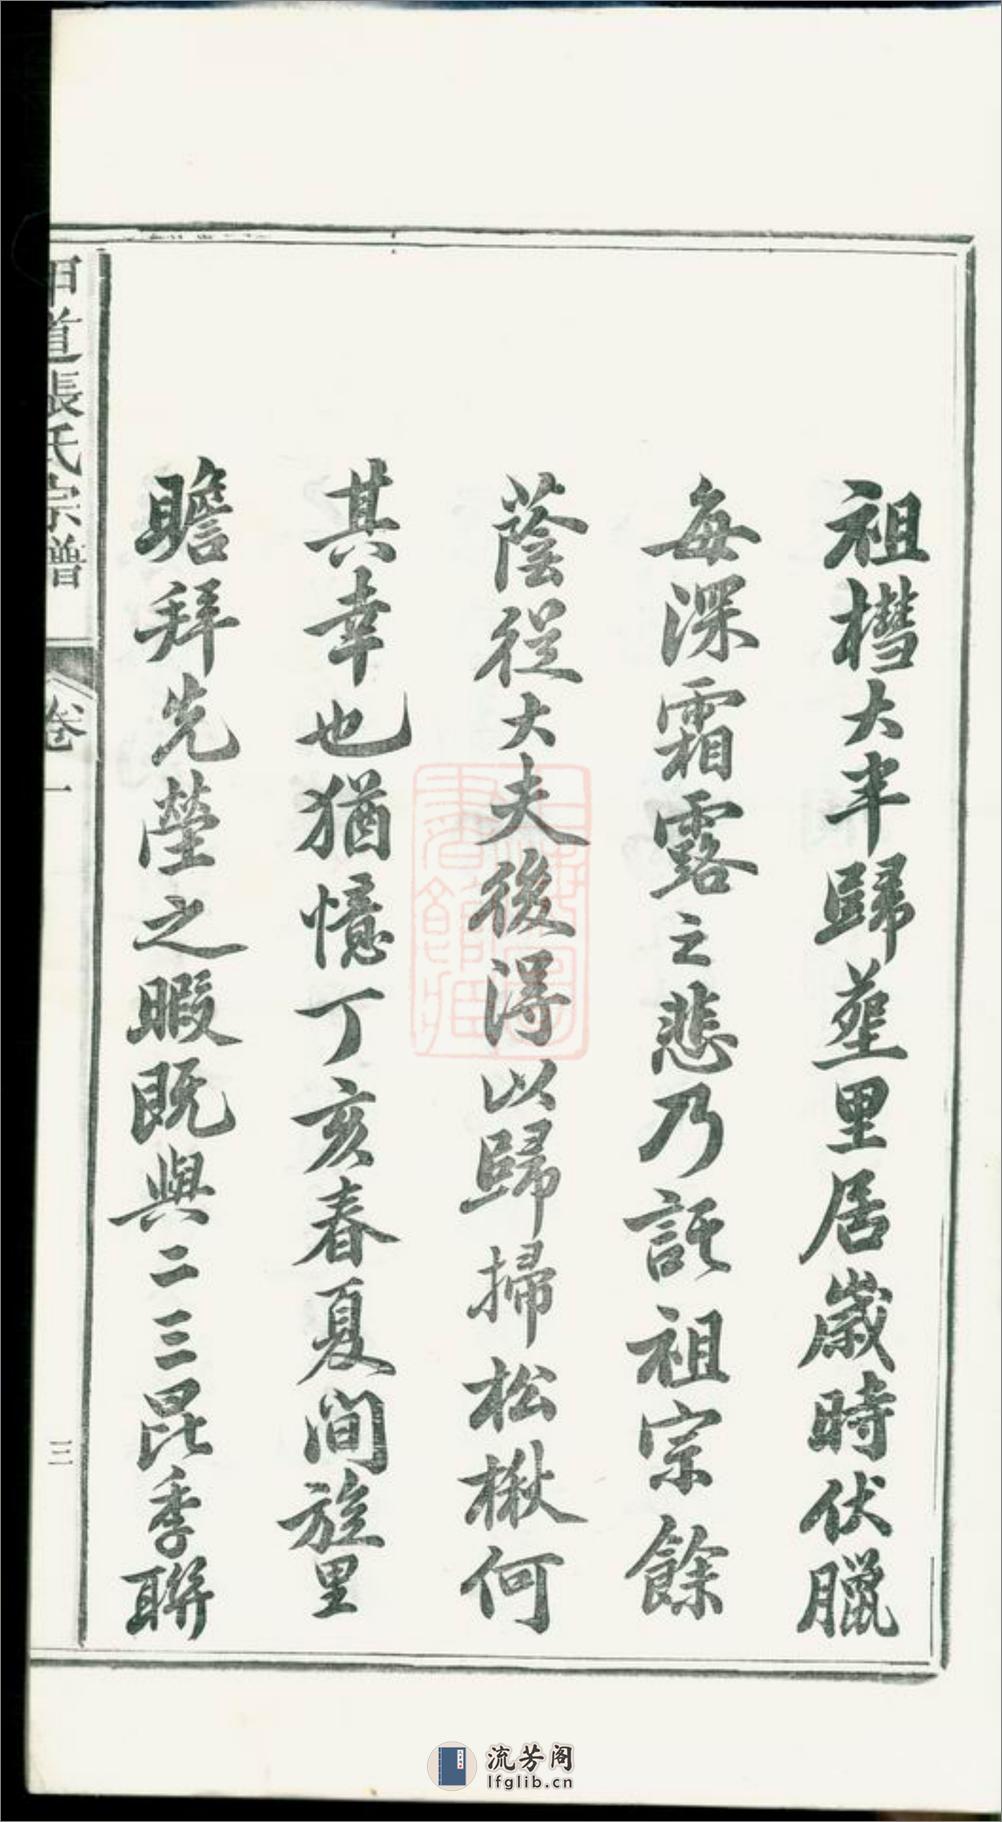 祖櫘大半歸塟里居歲時伏臘
每深霜露之悲乃託祖宗餘
蔭從大夫後得以歸掃松楸何
其幸也猶憶丁亥春夏間旋里
瞻拜先塋之暇既與二三昆季聯
甲道張氏宗譜
卷一
三
上海圖書館藏
流芳阁
lfglib.cn